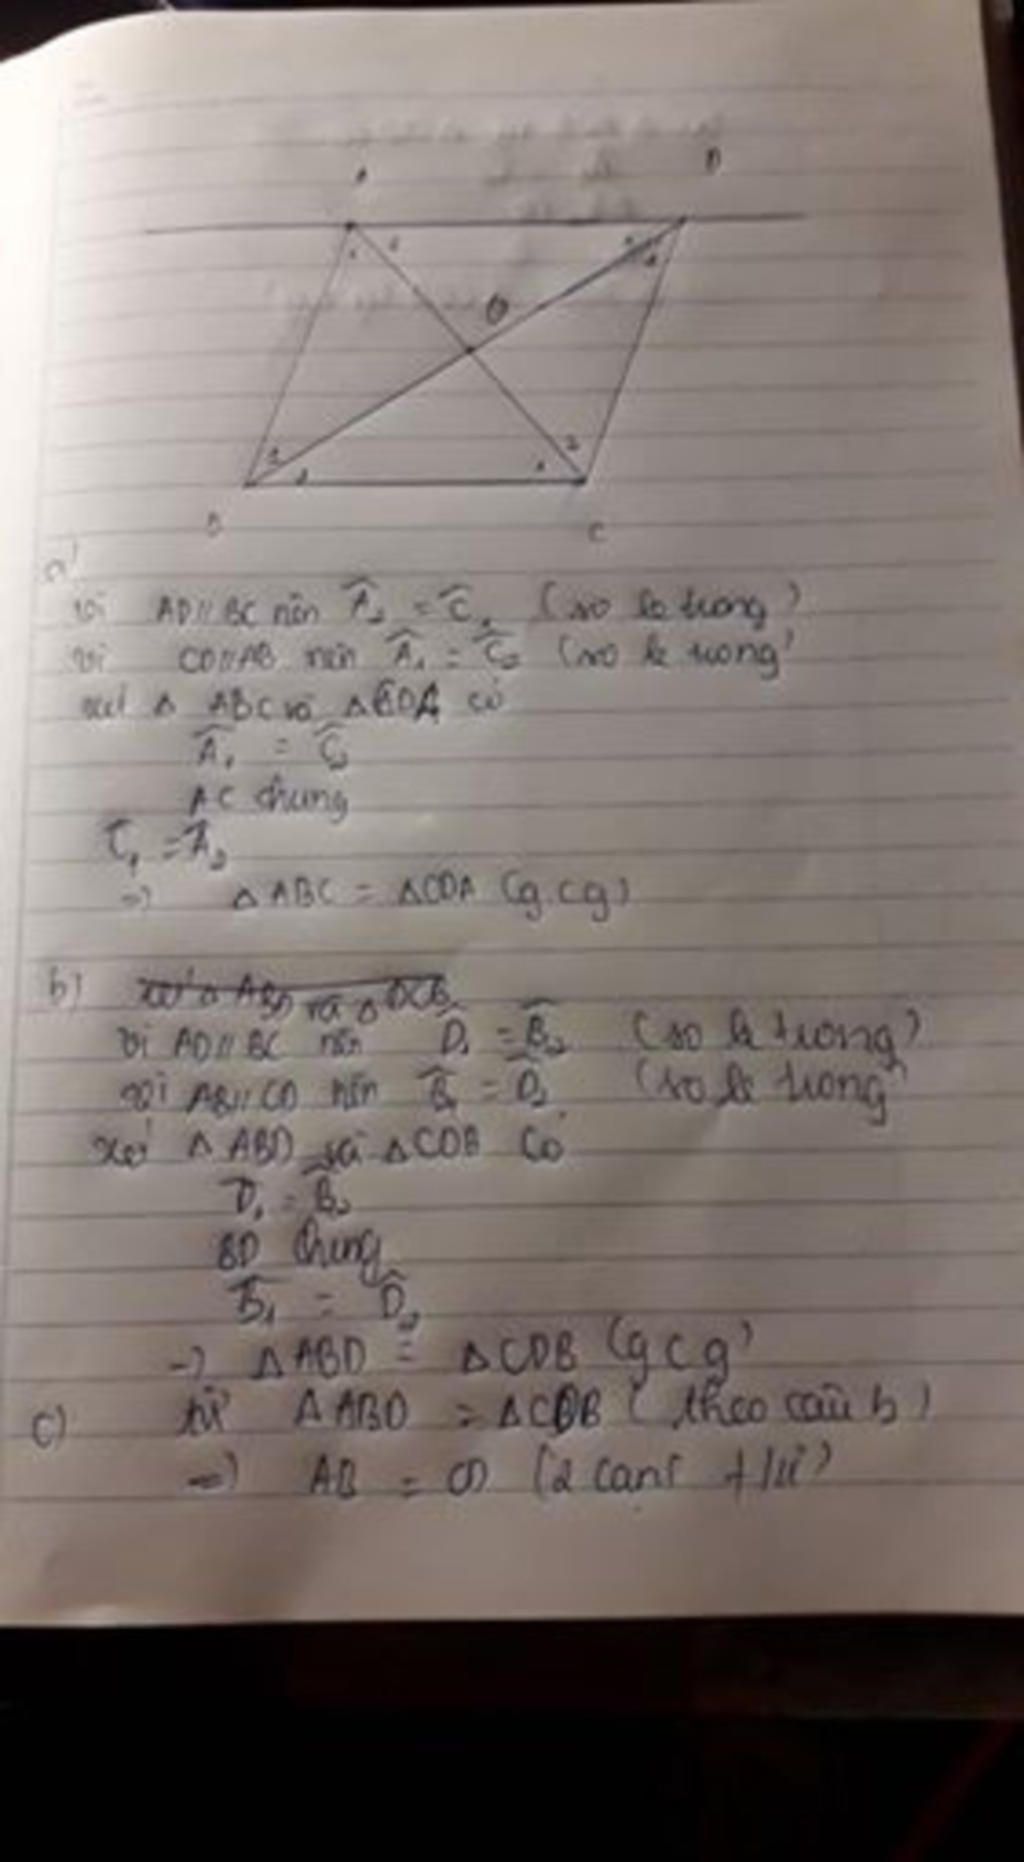 A D
O
B C
a)
vì AD//BC nên Â₂ = Ĉ₁ (so le trong)
vì CD//AB nên Â₁ = Ĉ₂ (so le trong)
xét Δ ABC và ΔCDA có
Â₁ = Ĉ₂
AC chung
Ĉ₁ = Â₂
=> Δ ABC = ΔCDA (g.c.g)
b) xét Δ ABD và Δ DCB
vì AD// BC nên D̂₁ = B̂₂ (so le trong)
vì AB//CD nên B̂₁ = D̂₂ (so le trong)
xét Δ ABD và ΔCDB có
D̂₁ = B̂₂
BD chung
B̂₁ = D̂₂
=> ΔABD = ΔCDB (g c g)
c) từ ΔABD = ΔCDB (theo câu b)
=> AB = CD (2 cạnh t/ứ)